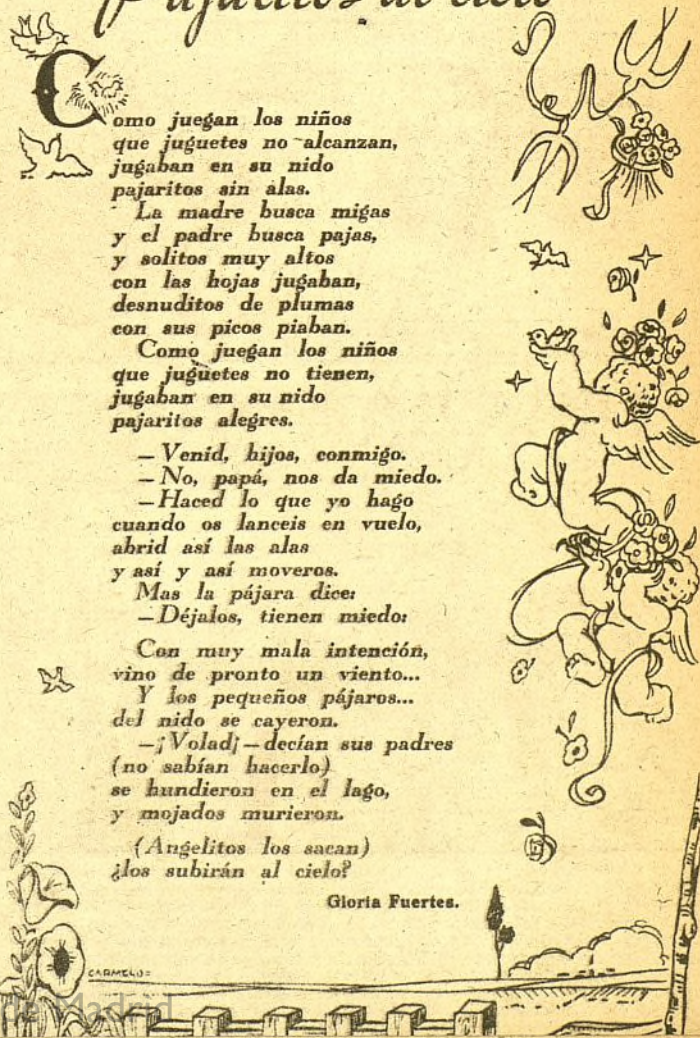 Pajaritos al cielo
Como juegan los niños
que juguetes no alcanzan,
jugaban en su nido
pajaritos sin alas.
La madre busca migas
y el padre busca pajas,
y solitos muy altos
con las hojas jugaban,
desnuditos de plumas
con sus picos piaban.
Como juegan los niños
que juguetes no tienen,
jugaban en su nido
pajaritos alegres.
—Venid, hijos, conmigo.
—No, papá, nos da miedo.
—Haced lo que yo hago
cuando os lanceis en vuelo,
abrid así las alas
y así y así moveros.
Mas la pájara dice:
—Déjalos, tienen miedo:
Con muy mala intención,
vino de pronto un viento...
Y los pequeños pájaros...
del nido se cayeron.
—¡Volad¡—decían sus padres
(no sabían hacerlo)
se hundieron en el lago,
y mojados murieron.
(Angelitos los sacan)
¿los subirán al cielo?
Gloria Fuertes.
CARMELO=
de Madrid